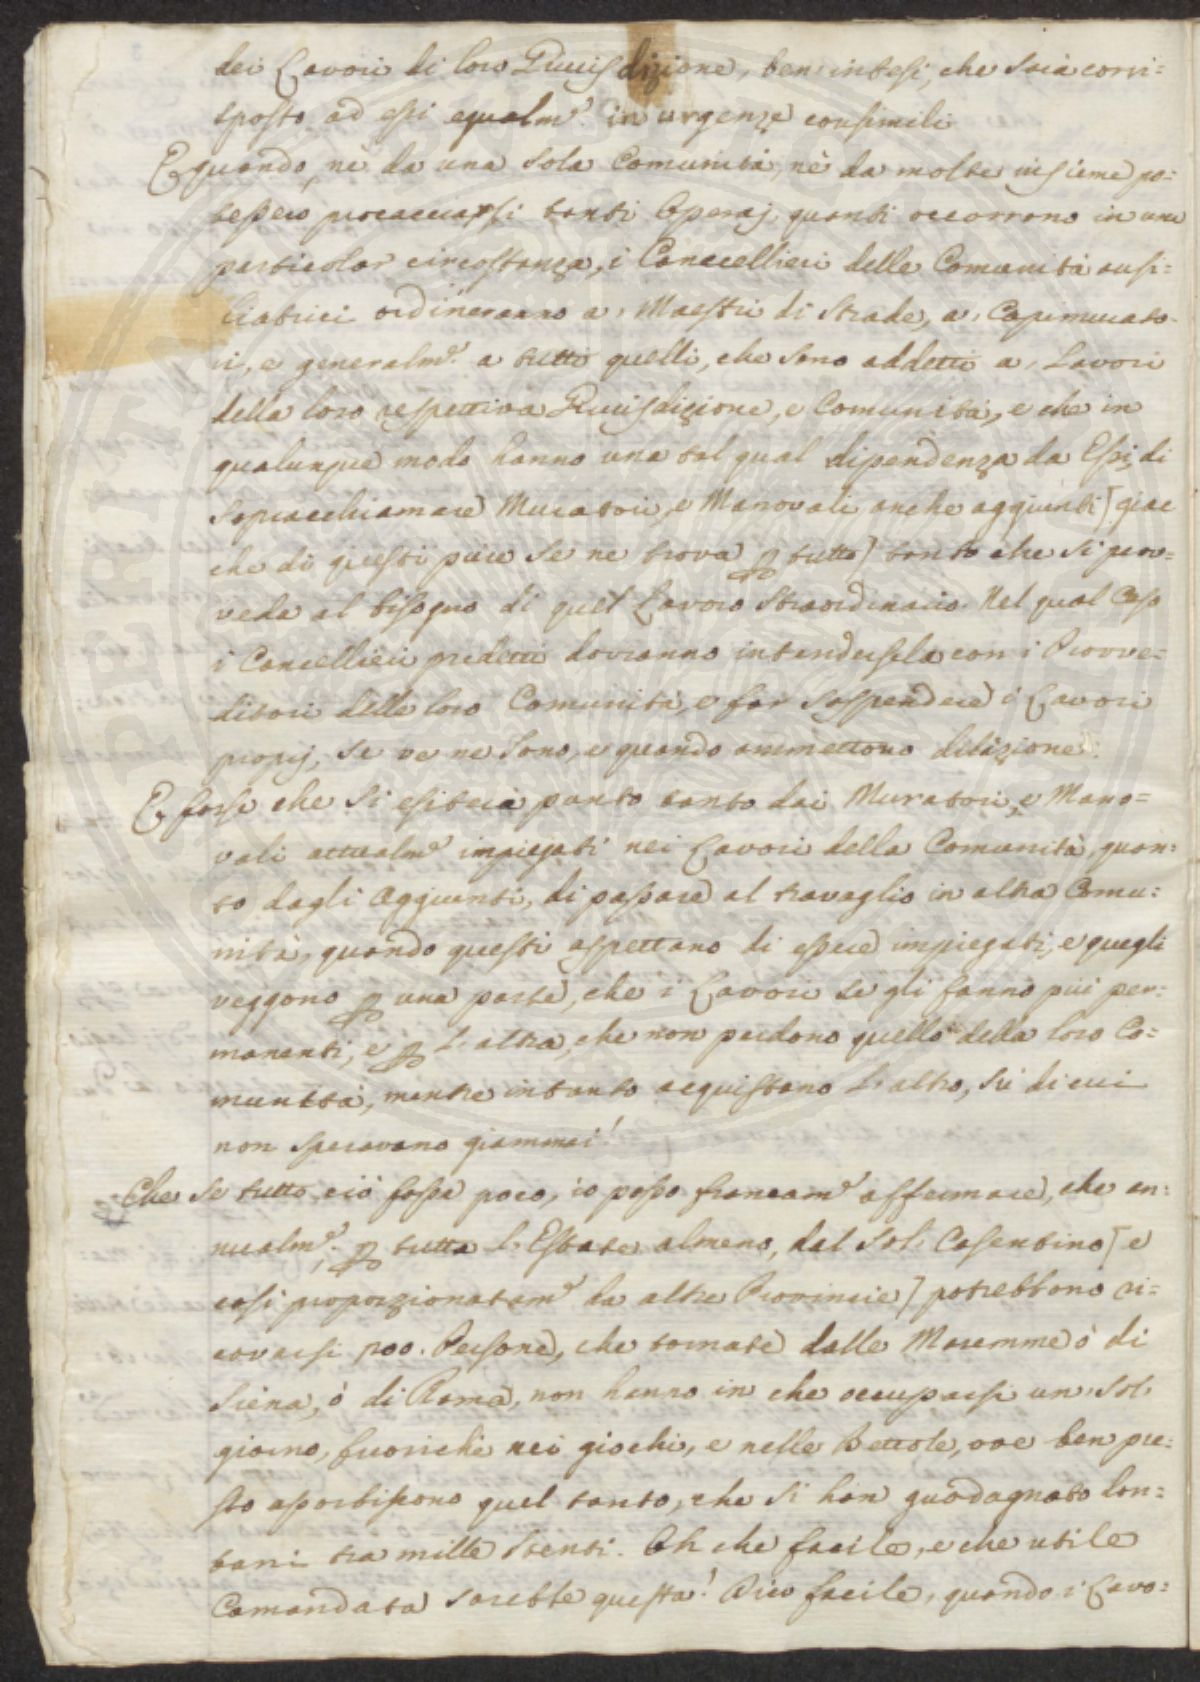 dei Lavori di loro Giurisdizione, ben'intesi, che sarà corri=
sposto ad essi equalm.e in urgenze consimili
E quando, nè da una sola Comunità, nè da molte insieme po=
tessero procacciarsi tanti Operaj quanti occorrono in una
particolar circostanza, i Cancellieri delle Comunità ausi=
liatrici ordineranno a' Maestri di Strade, a' Capimurato=
ri, e generalm.e a tutti quelli, che sono addetti a' Lavori
della loro respettiva Giurisdizione, e Comunità, e che in
qualunque modo hanno una tal qual dipendenza da Essi, di
sopracchiamare Muratori, e Manovali anche aggiunti [giac
che di questi pure se ne trova p tutto] tanto che si prov=
veda al bisogno di quel Lavoro straordinario. Nel qual Caso
i Cancellieri predetti dovranno intendersela con i Provve=
ditori delle loro Comunità, e far sospendere i Lavori
proprj, se ve ne sono, e quando ammettono dilazione.
E forse che si esiterà punto tanto dai Muratori, e Mano=
vali attualm.e impiegati nei Lavori della Comunità, quan=
to dagli Aggiunti, di passare al travaglio in altra Comu=
nità, quando questi aspettano di essere impiegati, e quegli
veggono p una parte, che i Lavori se gli fanno più per=
manenti, e p l'altra, che non perdono quello della loro Co=
munità, mentre intanto acquistano l'altro, su di cui
non speravano giammai!
Che se tutto ciò fosse poco, io posso francam.e affermare, che an=
nualm.e, p tutta l'Estate almeno, dal sol' Casentino [e
così proporzionatam.e da altre Provincie] potrebbono ri=
trovarsi 700. Persone, che tornate dalle Maremme ò di
Siena, ò di Roma, non hanno in che occuparsi un' sol'
giorno, fuorichè nei giochi, e nelle Bettole, ove ben pre=
sto assorbiscono quel tanto, che si han' guadagnato lon=
tani tra mille stenti. Oh che facile, e che utile
Comandata sarebbe questa! Dico facile, quando i Lavo=